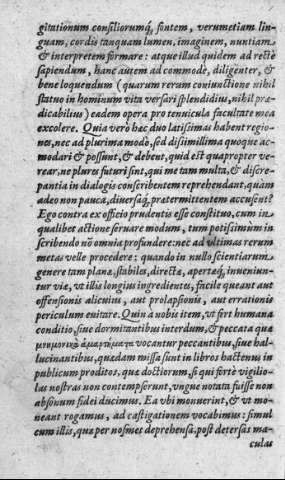 gitationum consiliorumq́, fontem, verumetiam lin-
guam, cordis tanquam lumen, imaginem, nuntiam
& interpretem formare: atque illud quidem ad rectè
sapiendum, hanc autem ad commode, diligenter, &
bene loquendum (quarum rerum coniunctione nihil
statuo in hominum vita versari splendidius, nihil præ-
dicabilius) eadem opera pro tenuicula facultate mea
excolere. Quia verò hæc duo latissimas habent regio-
nes, nec ad plurima modò, sed dissimillima quoque ac-
modari & possunt, & debent, quid est quapropter ve-
rear, ne plures futuri sint, qui me tam multa, & discre-
pantia in dialogis conscribentem reprehendant, quàm
adeo non pauca, diuersaq́, prætermittentem accusent?
Ego contra ex officio prudentis esse constituo, cum in
qualibet actione seruare modum, tum potissimùm in
scribendo nō omnia profundere: nec ad vltimas rerum
metas velle procedere: quando in nullo scientiarum
genere tam planæ, stabiles, directæ, apertæq́, inueniun-
tur viæ, vt illis longius ingredientes, facile queant aut
offensionis alicuius, aut prolapsionis, aut errationis
periculum euitare. Quin a nobis item, vt fert humana
conditio, siue dormitantibus interdum, & peccata quæ
μνημονικὰ ἁμαρτήματα vocantur peccantibus, siue hal-
lucinantibus, quædam missa sunt in libros hactenus in
publicum proditos, quæ doctiorum, si qui fortè vigilio-
las nostras non contempserunt, vngue notata fuisse non
absonum fidei ducimus. Ea vbi monuerint, & vt mo-
neant rogamus, ad castigationem vocabimus: simul
cum illis, quæ per nosmet deprehensa, post detersas ma-
culas